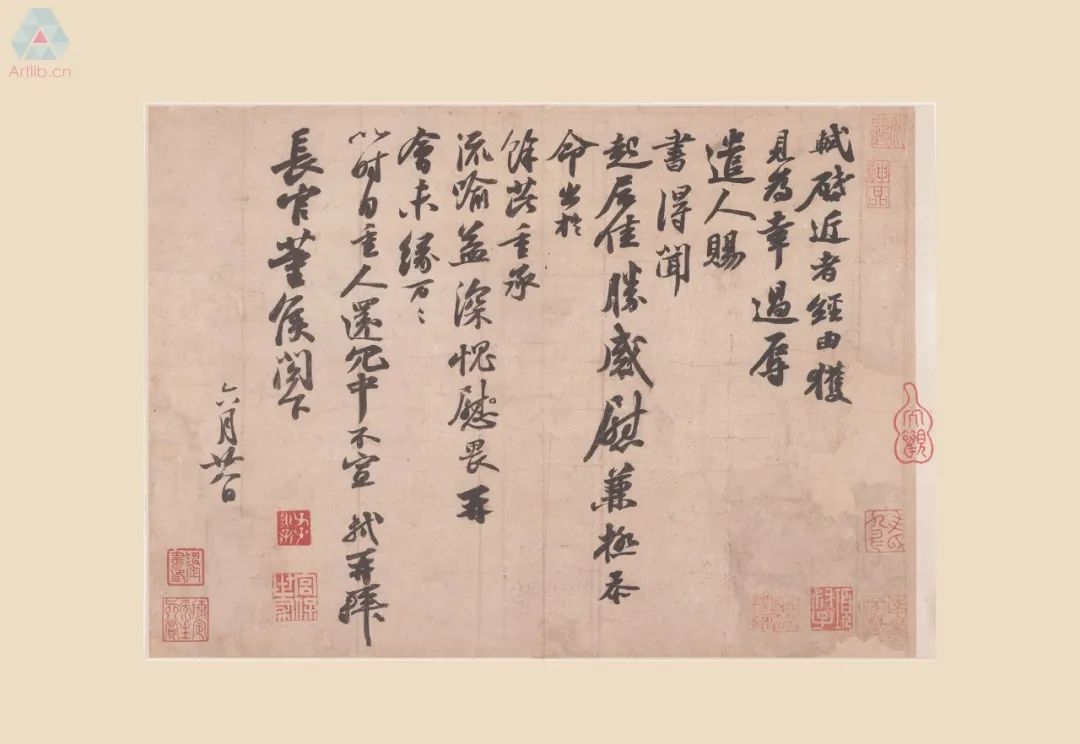 Artlib.cn
軾啟近者經由獲
見為幸過辱
遣人賜
書得聞
起居佳勝感慰兼極忝
命出於
餘芘重承
流喻益深愧慰畏再
會未緣万〻
以时自重人還冗中不宣 軾再拜
長官董侯閣下
六月廿八日
神品